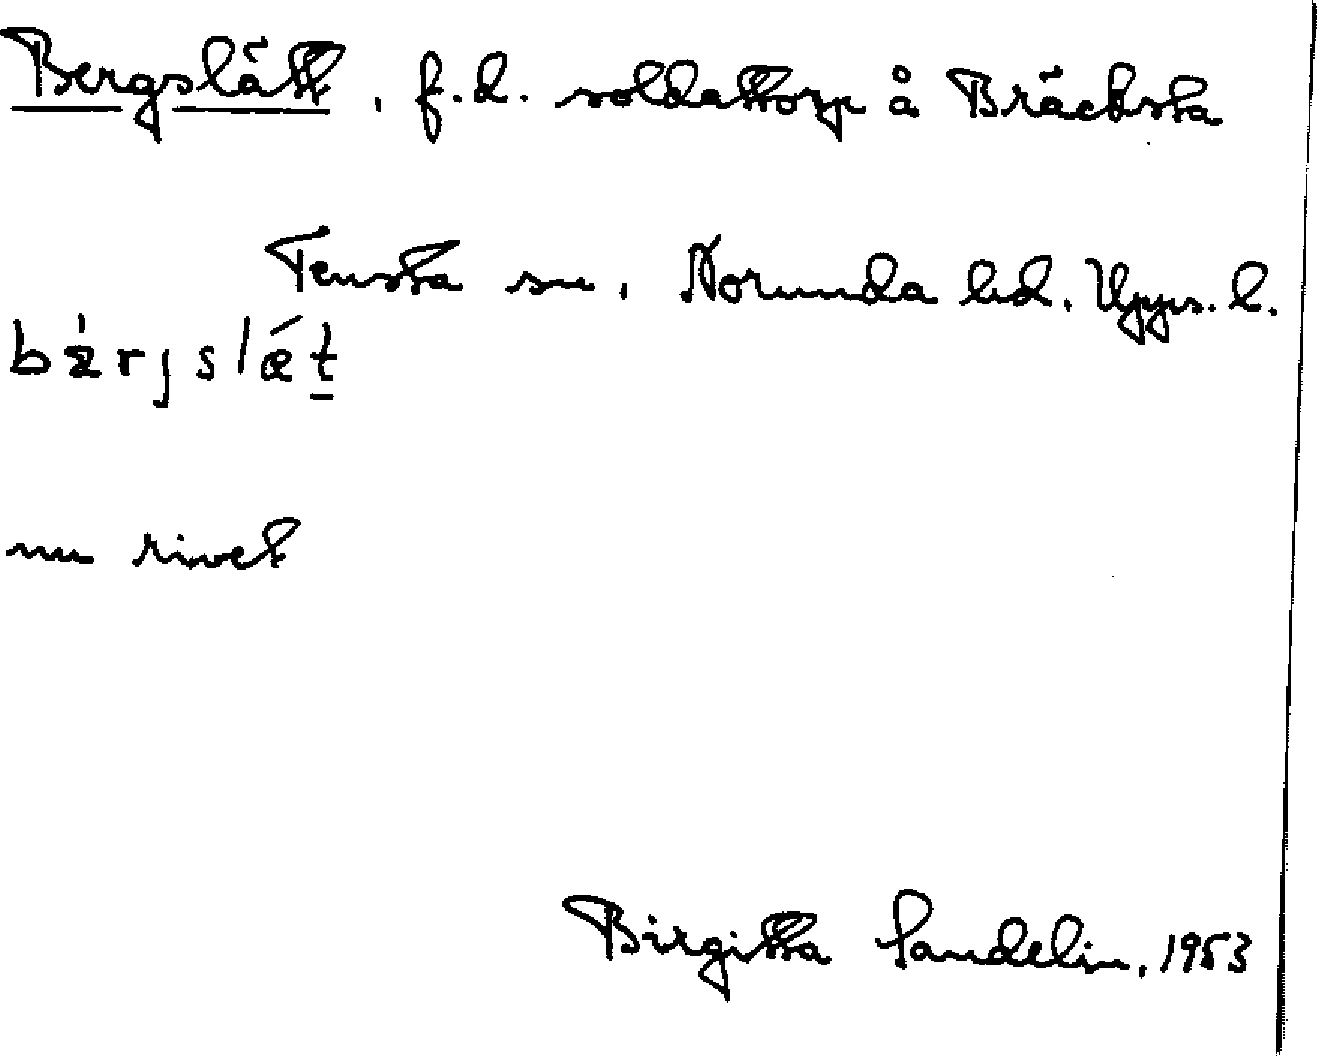 Bergslätt, f.d. soldattorp å Bräcksta
Tensta sn, Norunda hd. Upps. l.
bærjslǽt̠
nu rivet
Birgitta Sandelin, 1953